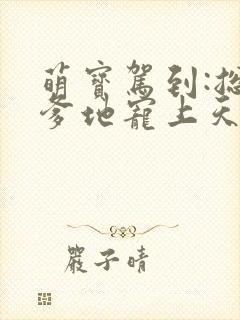 萌寶駕到:總
爹地寵上天
嚴子晴